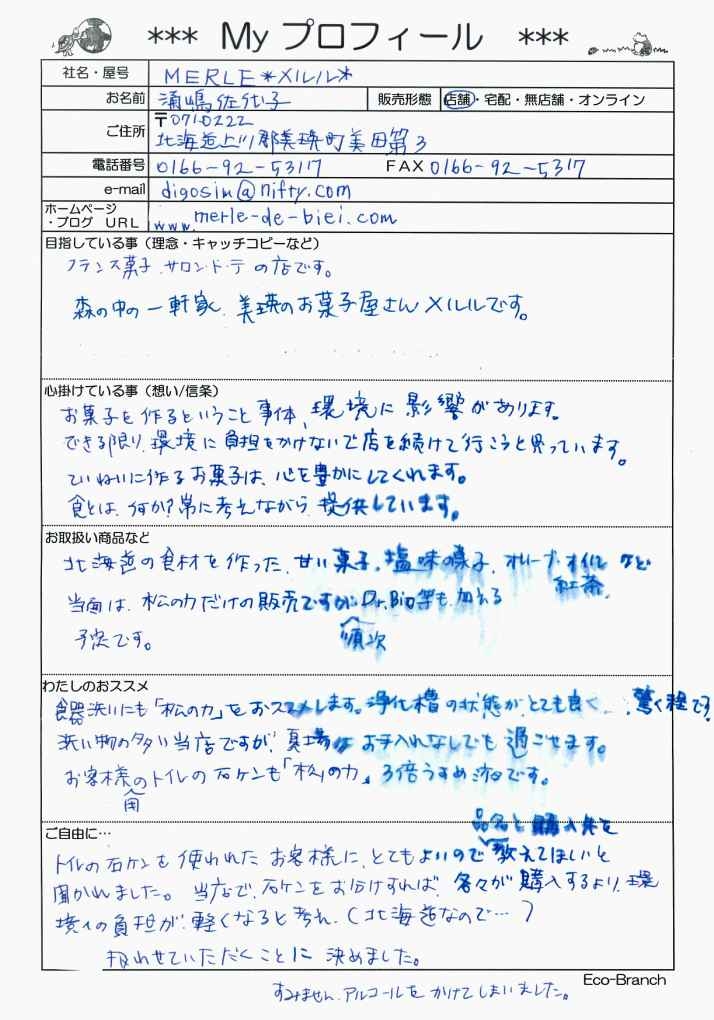 *** My プロフィール ***
社名・屋号 MERLE＊メルル＊
お名前 浦嶋佐代子 販売形態 店舗・宅配・無店舗・オンライン
ご住所 〒071-0222
北海道上川郡美瑛町美田第3
電話番号 0166-92-5317 FAX 0166-92-5317
e-mail digosim@nifty.com
ホームページ
・ブログ URL www.merle-de-biei.com
目指している事（理念・キャッチコピーなど）
フランス菓子.サロン・ド・テの店です。
森の中の一軒家.美瑛のお菓子屋さんメルルです。
心掛けている事（想い/信条）
お菓子を作るということ事体、環境に影響があります。
できる限り、環境に負担をかけないで店を続けて行こうと思っています。
ていねいに作るお菓子は、心を豊かにしてくれます。
食とは、何か?常に考えながら、提供しています。
お取扱い商品など
北海道の食材を作った、甘い菓子、塩味の菓子、オリーブ・オイルなど
紅茶、
当面は、松の力だけの販売ですが、Dr.Bio等も加える
予定です。
順次
わたしのおススメ
食器洗いにも「松の力」をおススメします。浄化槽の状態が、とても良く…、驚く程です
洗い物の多い当店ですが、夏場はお手入れなしでも過ごせます。
お客様のトイレの石ケンも「松の力」3倍うすめ液です。
用
ご自由に…
品名と購入先を
トイレの石ケンを使われたお客様に、とてもよいので教えてほしいと
聞かれました。当店で、石ケンをお分けすれば、各々が購入するより、環
境への負担が、軽くなると考え、（北海道なので…）
扱わせていただくことに決めました。
Eco-Branch
すみません、アルコールをかけてしまいました。